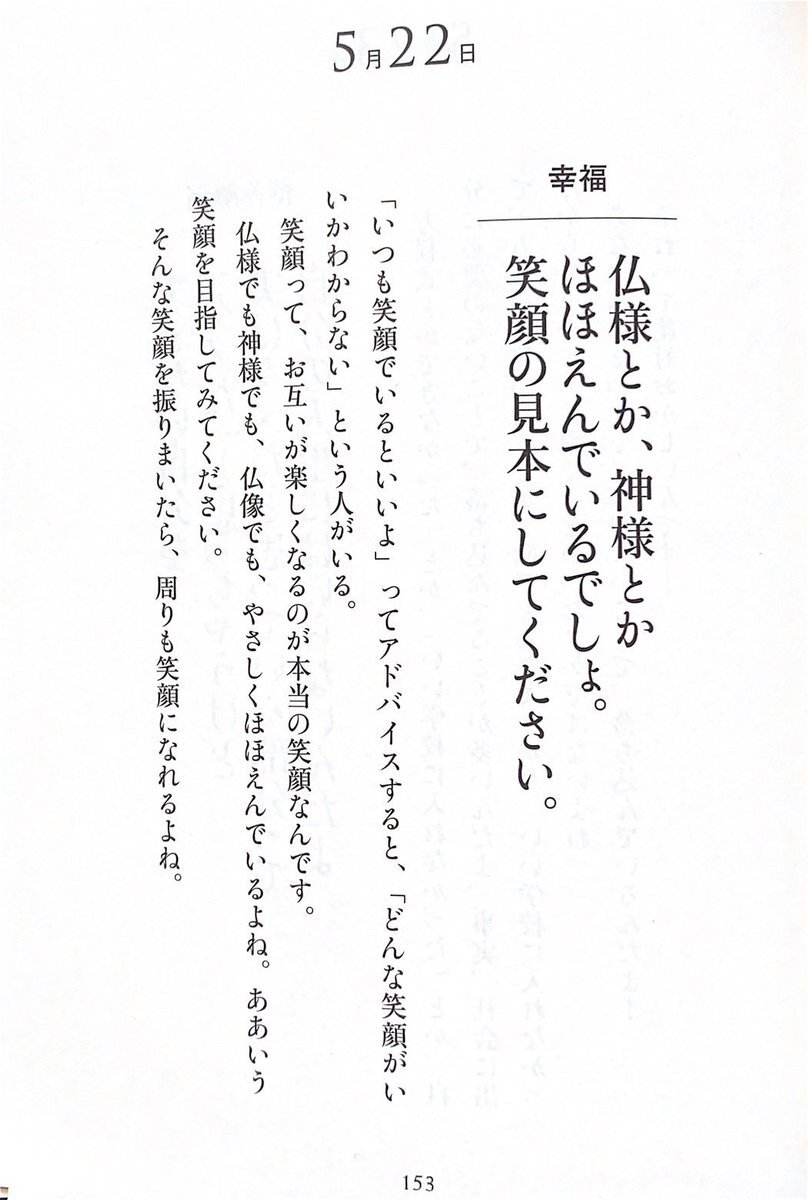 5月22日
幸福
仏様とか、神様とか
ほほえんでいるでしょ。
笑顔の見本にしてください。
「いつも笑顔でいるといいよ」ってアドバイスすると、「どんな笑顔がい
いかわからない」という人がいる。
笑顔って、お互いが楽しくなるのが本当の笑顔なんです。
仏様でも神様でも、仏像でも、やさしくほほえんでいるよね。ああいう
笑顔を目指してみてください。
そんな笑顔を振りまいたら、周りも笑顔になれるよね。
153